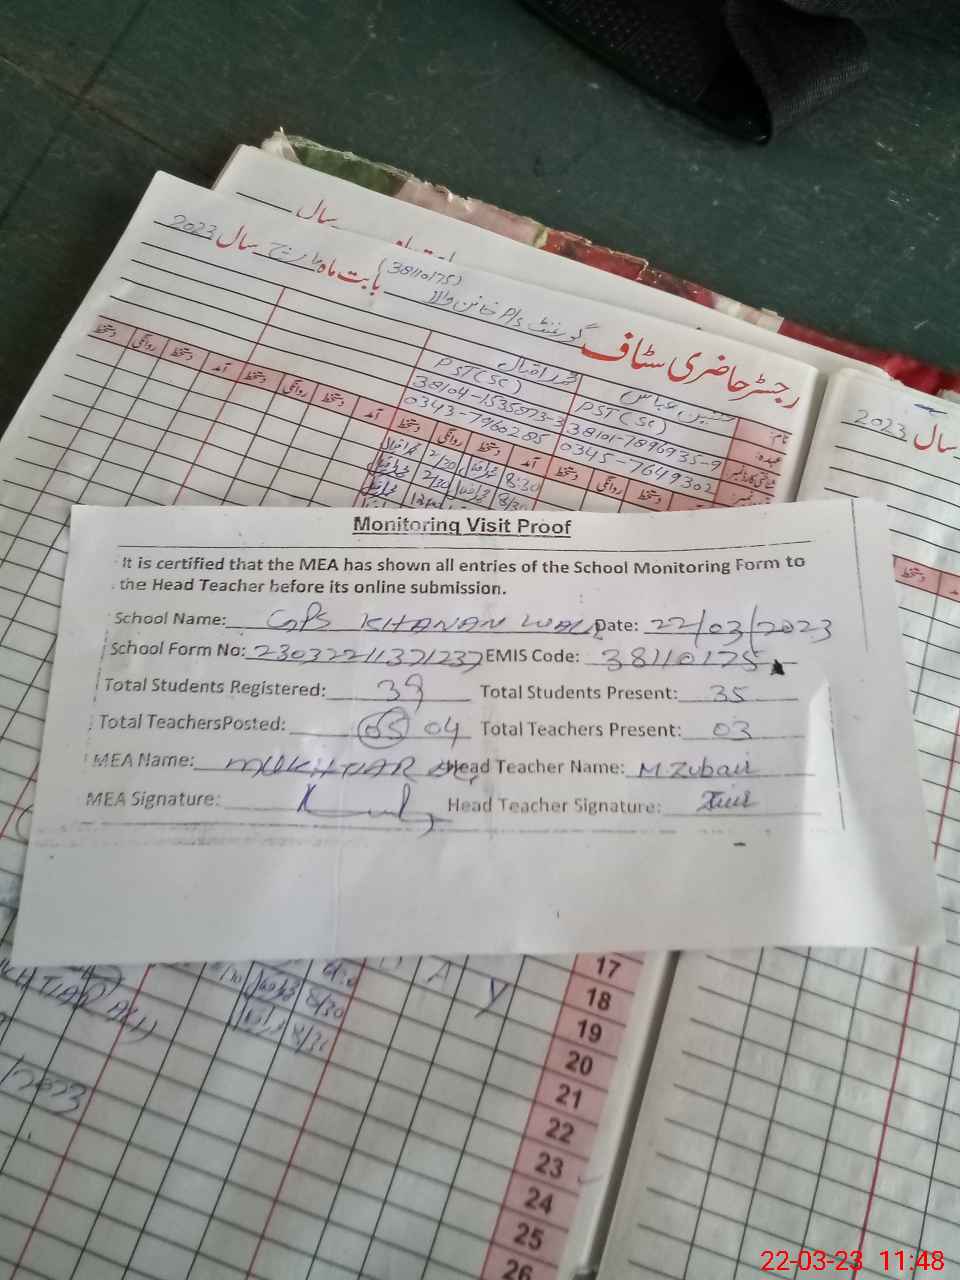 سال
2023 سال مارچ بابت ماہ (38110175)
گورنمنٹ P/S خانن والا
رجسٹر حاضری سٹاف
2023 سال
نام:
عہدہ:
محمد اقبال
PST(SC) PST(SC)
38104-1535873-3 38101-7896935-9
0343-7960285 0345-7649302
دستخط روانگی دستخط آمد دستخط روانگی دستخط آمد دستخط روانگی دستخط آمد دستخط روانگی دستخط
Monitoring Visit Proof
It is certified that the MEA has shown all entries of the School Monitoring Form to
the Head Teacher before its online submission.
School Name: GPS KHANAN WALA Date: 22/03/2023
School Form No: 23032211371237 EMIS Code: 38110175
Total Students Registered: 39 Total Students Present: 35
Total TeachersPosted: 05 04 Total Teachers Present: 03
MEA Name: MUKHTIAR ALI Head Teacher Name: M.Zubair
MEA Signature: Head Teacher Signature:
17
18
19
20
21
22
23
24
25
26
8/30
MUKHTIAR ALI
/2023
22-03-23 11:48